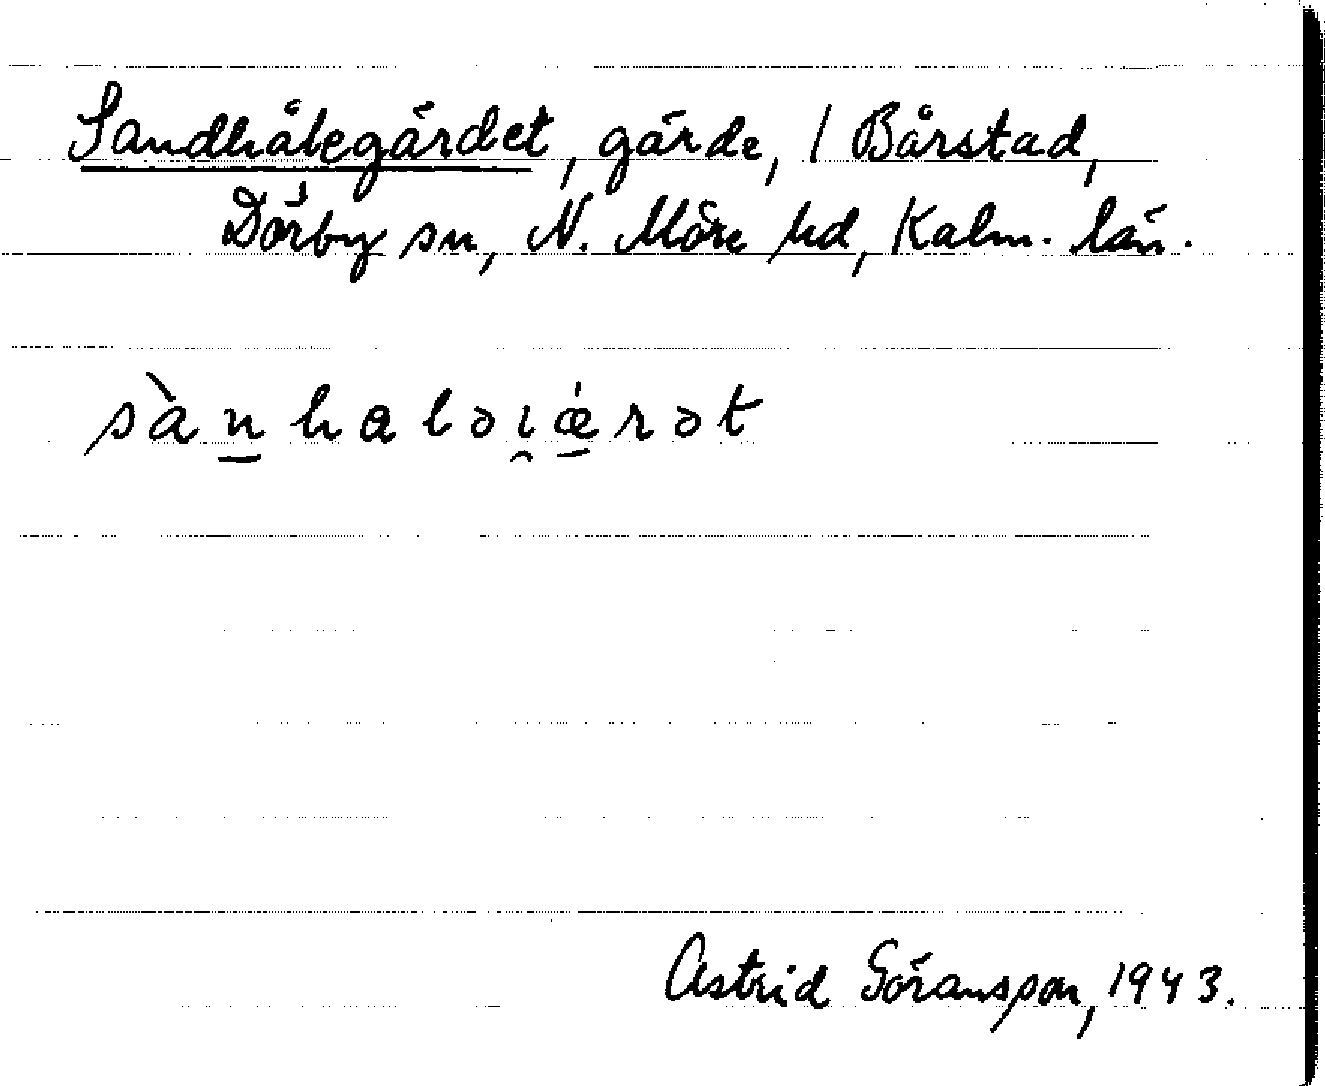 Sandhålegärdet, gärde, / Bårstad,
Dörby sn, N. Möre hd, Kalm. län.
sànhaləi̯ærət
Astrid Göransson, 1943.